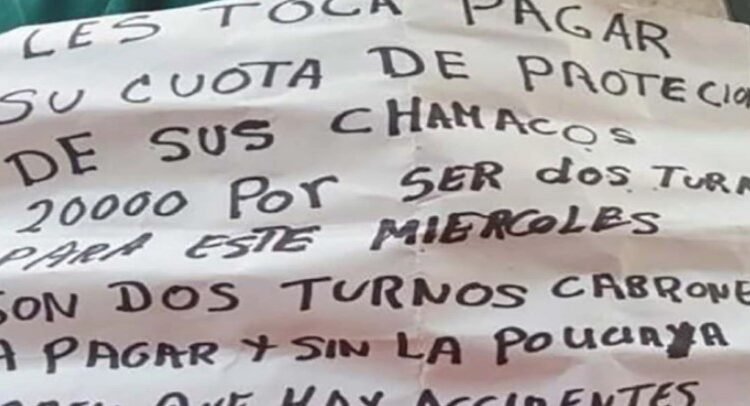 LES TOCA PAGAR
SU CUOTA DE PROTECIO
DE SUS CHAMACOS
20000 POr SER dos TURN
PARA ESTE MIERCOLES
SON DOS TURNOS CABRONE
A PAGAR Y SIN LA
QUE HAY ACCIDENTES